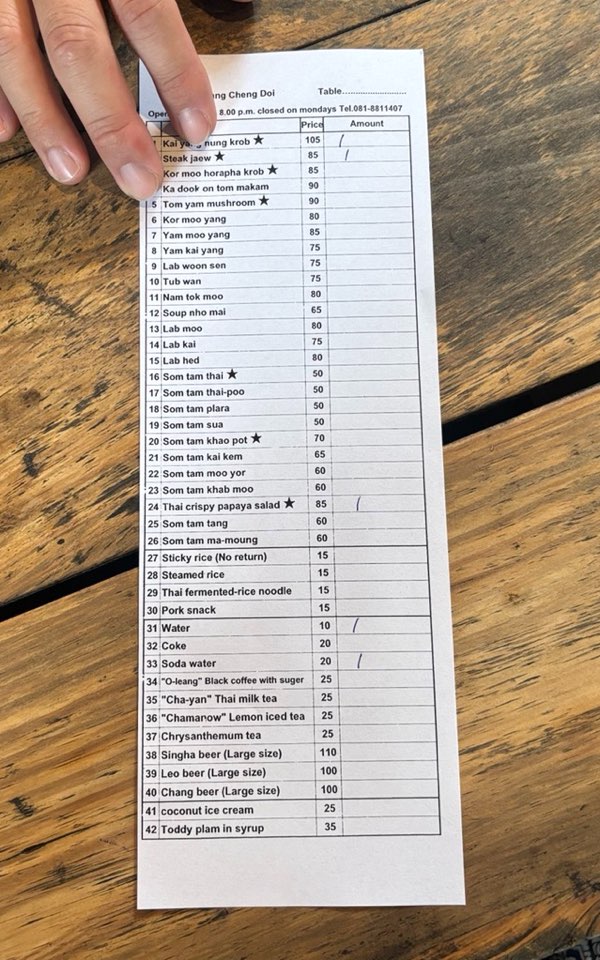 Cheng Doi Table..........................
8.00 p.m. closed on mondays Tel.081-8811407
Price Amount
Kai nung krob ★ 105 /
Steak jaew ★ 85 /
Kor moo horapha krob ★ 85
Ka dook on tom makam 90
5 Tom yam mushroom ★ 90
6 Kor moo yang 80
7 Yam moo yang 85
8 Yam kai yang 75
9 Lab woon sen 75
10 Tub wan 75
11 Nam tok moo 80
12 Soup nho mai 65
13 Lab moo 80
14 Lab kai 75
15 Lab hed 80
16 Som tam thai ★ 50
17 Som tam thai-poo 50
18 Som tam plara 50
19 Som tam sua 50
20 Som tam khao pot ★ 70
21 Som tam kai kem 65
22 Som tam moo yor 60
23 Som tam khab moo 60
24 Thai crispy papaya salad ★ 85 /
25 Som tam tang 60
26 Som tam ma-moung 60
27 Sticky rice (No return) 15
28 Steamed rice 15
29 Thai fermented-rice noodle 15
30 Pork snack 15
31 Water 10 /
32 Coke 20
33 Soda water 20 /
34 "O-leang" Black coffee with suger 25
35 "Cha-yan" Thai milk tea 25
36 "Chamanow" Lemon iced tea 25
37 Chrysanthemum tea 25
38 Singha beer (Large size) 110
39 Leo beer (Large size) 100
40 Chang beer (Large size) 100
41 coconut ice cream 25
42 Toddy plam in syrup 35